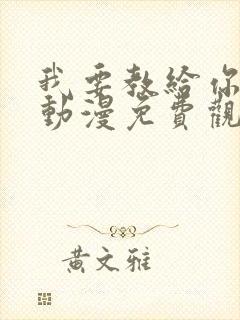 我要教給你
動漫免費觀
黃文雅